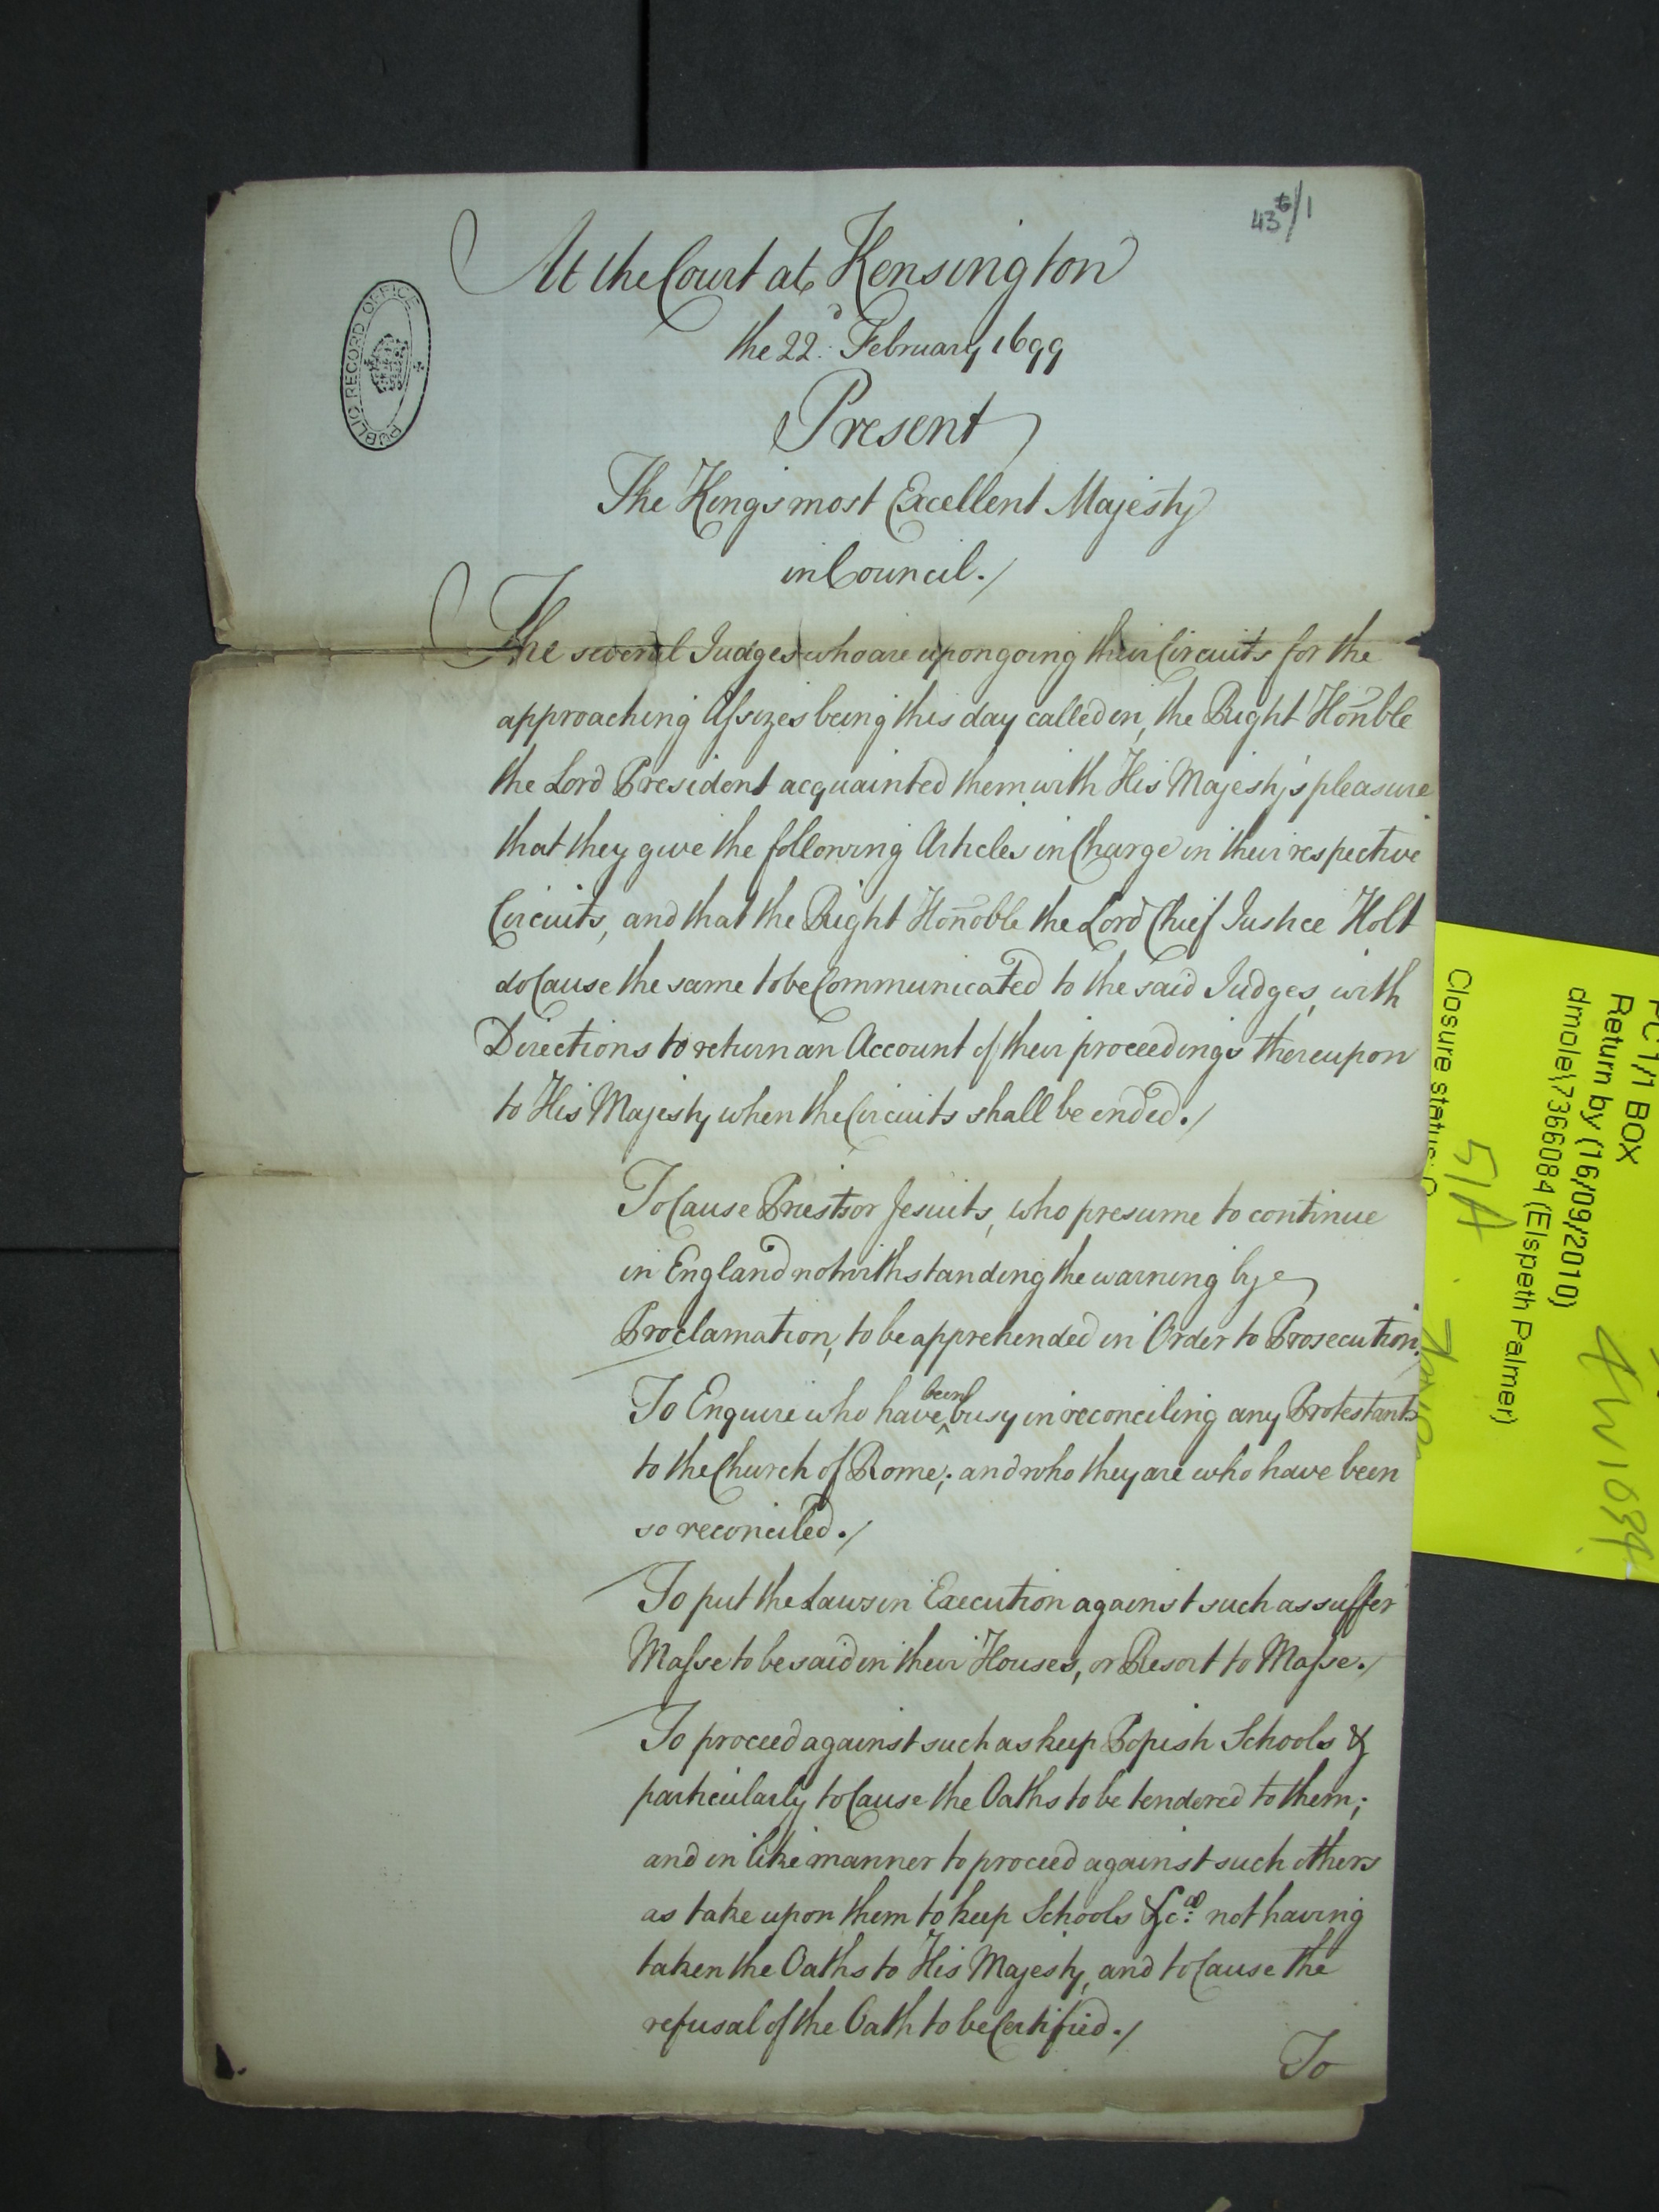 43b/1
At the Court at Kensington
the 22.d February 1699
Present
The Kings most Excellent Majesty
in Council./
PUBLIC RECORD OFFICE
The several Judges who are upon going their Circuits for the
approaching Assizes being this day called in, the Right Honble
the Lord President acquainted them with His Majesty's pleasure
that they give the following Articles in Charge in their respective
Circuits, and that the Right Honoble the Lord Chief Justice Holt
do Cause the same to be Communicated to the said Judges, with
Directions to return an Account of their proceedings thereupon
to His Majesty when the Circuits shall be ended./
To Cause Priests or Jesuits, who presume to continue
in England notwithstanding the warning by
Proclamation, to be apprehended in Order to Prosecution./
To Enquire who have been busy in reconciling any Protestants
to the Church of Rome; and who they are who have been
so reconciled./
To put the Laws in Execution against such as suffer
Masse to be said in their Houses, or Resort to Masse./
To proceed against such as keep Popish Schools &
particularly to Cause the Oaths to be tendered to them;
and in like manner to proceed against such others
as take upon them to keep Schools &c.a not having
taken the Oaths to His Majesty, and to Cause the
refusal of the Oath to be Certified./
To
PC 1/1 BOX
Return by (16/09/2010)
dmole\7366084 (Elspeth Palmer)
Closure status:
51A